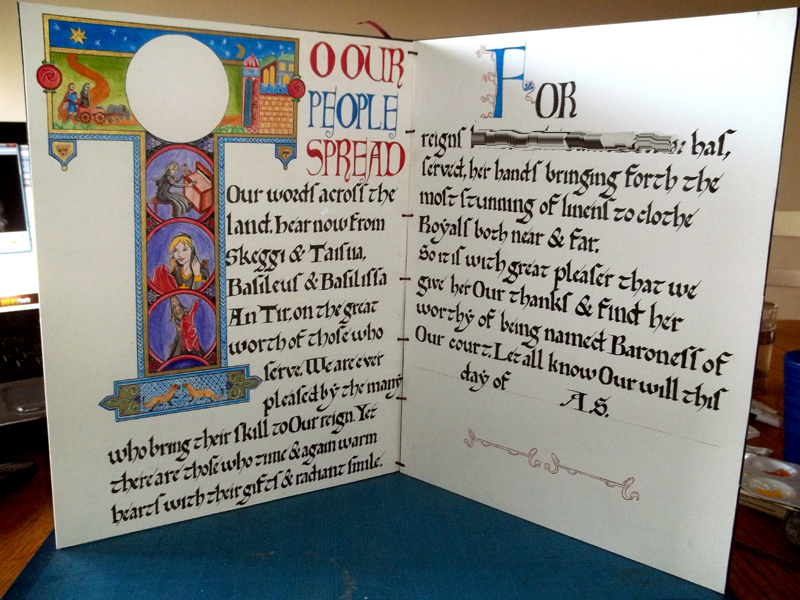 TO OUR
PEOPLE
SPREAD
Our words across the
land, hear now from
Skeggi & Taisiia,
Basileus & Basilissa
An Tir, on the great
worth of those who
serve. We are ever
pleased by the many
who bring their skill to Our reign. Yet
there are those who time & again warm
hearts with their gifts & radiant smile.
FOR
reigns has,
served, her hands bringing forth the
most stunning of linens to clothe
Royals both near & far.
So it is with great pleaser that we
give her Our thanks & find her
worthy of being named Baroness of
Our court. Let all know Our will this
day of A.S.